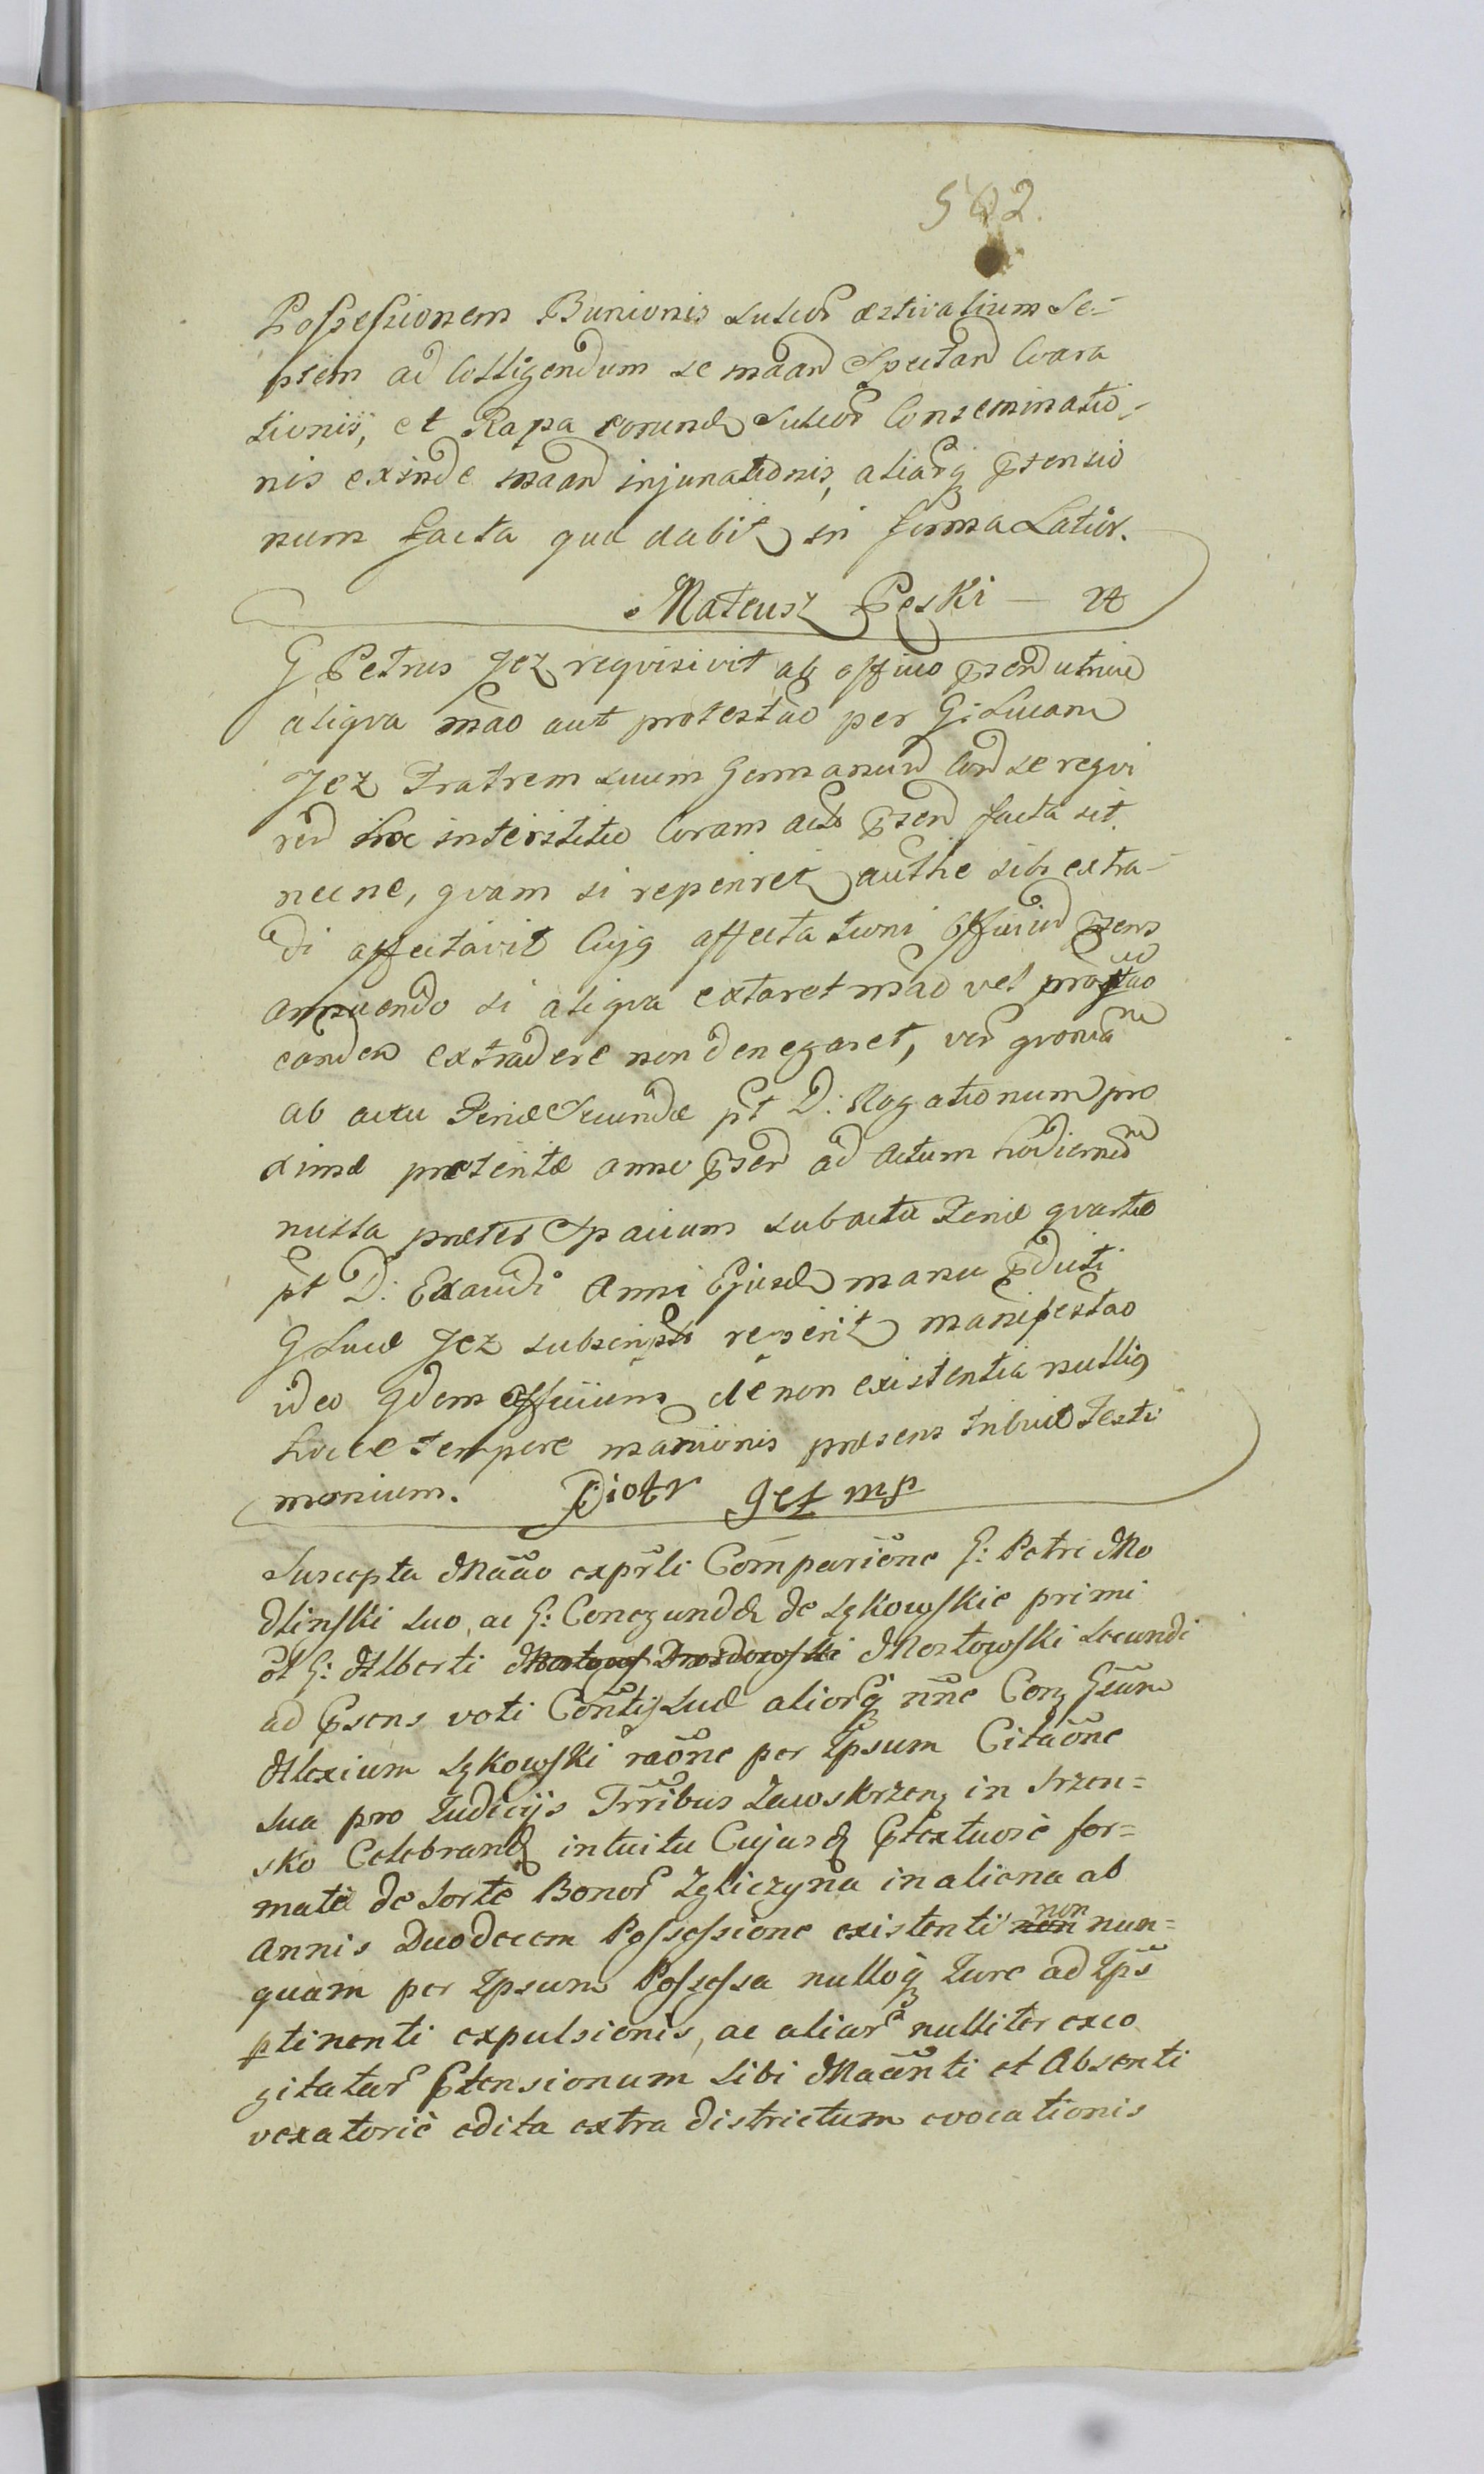 502.
Possessionem Bunionis sulcor æstivalium Se-
ptem ad Colligendum se maan Spectan Coara
tionis, et Rapa eorund Sulcor Conseminatio-
nis exinde maan injunationis, aliarq ptensio
num facta quæ dabit in forma Latior.
Mateusz Pęski
G Petrus Jez reqvisivit ab officio psen utrum
aliqva mão aut protestao per G: Lucam
Jez Fratrem suum Germanum Con se reqvi
ren hoc interstitio Coram acto psen facta sit
necne, qvam si reperiret authe sibi extra-
di affectavit Cujq affectationi Officium psens
annuendo si aliqva extaret mão vel protao
eandem extradere non denegaret, ver qvoniam
ab actu Feriæ Secundæ pt D: Rogationum pro
ximæ præteritæ anno psen ad actum hodiernum
nulla præter Spacium sub actu Feriæ qvartæ
pt D: Exaudi Anni Ejusd manu pducti
G Lucæ Jez subscripto reperit manifestao
ideo qdem officium de non existentia nulliq
hocce tempore manionis præsens tribuit Testi
monium. Piotr Jeż mp
Suscepta Maão exprsli Comparione G: Petri Mo
dlinski suo, ac G: Conegundæ de Łękowskie primi
et G: Alberti Mostows Drozdowski Mostowski Secundi
ad Psens voti Contis Suæ aliorq nne Con Gsum
Alexium Łękowski raône per Ipsum Citaône
sua pro Iudicijs Trribus Zawoskrzen in Srzen=
sko Celebrand intuitu Cujusd Ptextuosè for=
matæ de Sorte Bonor Zgliczyna in aliena ab
Annis Duodecem Possessione existenti non non nun=
quam per Ipsum Possessa nulloq Iure ad Ips
ptinenti expulsionis, ac aliar nulliter exco
gitatar Ptensionum Sibi Maanti et Absenti
vexatoriè edita extra districtum evocationis